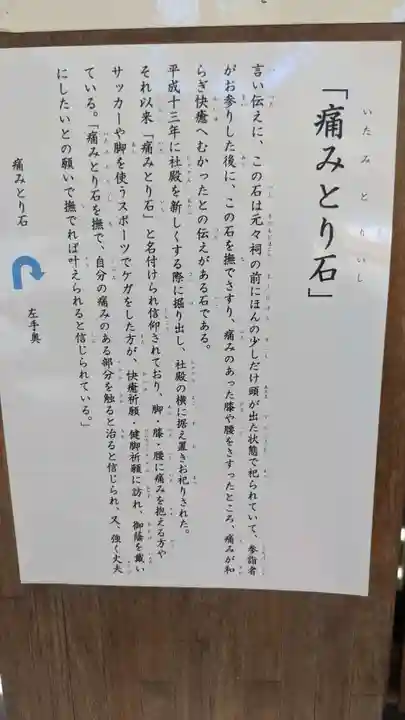 「痛みとり石」
いたみとりいし
言い伝えに、この石は元々祠の前にほんの少しだけ頭が出た状態で祀られていて、参詣者
がお参りした後に、この石を撫でさすり、痛みのあった膝や腰をさすったところ、痛みが和
らぎ快癒へむかったとの伝えがある石である。
平成十三年に社殿を新しくする際に掘り出し、社殿の横に据え置きお祀りされた。
それ以来「痛みとり石」と名付けられ信仰されており、脚・膝・腰に痛みを抱える方や
サッカーや脚を使うスポーツでケガをした方が、快癒祈願・健脚祈願に訪れ、御蔭を戴い
ている。「痛みとり石を撫で、自分の痛みのある部分を触ると治ると信じられ、又、強く丈夫
にしたいとの願いで撫でれば叶えられると信じられている。」
痛みとり石
左手奥